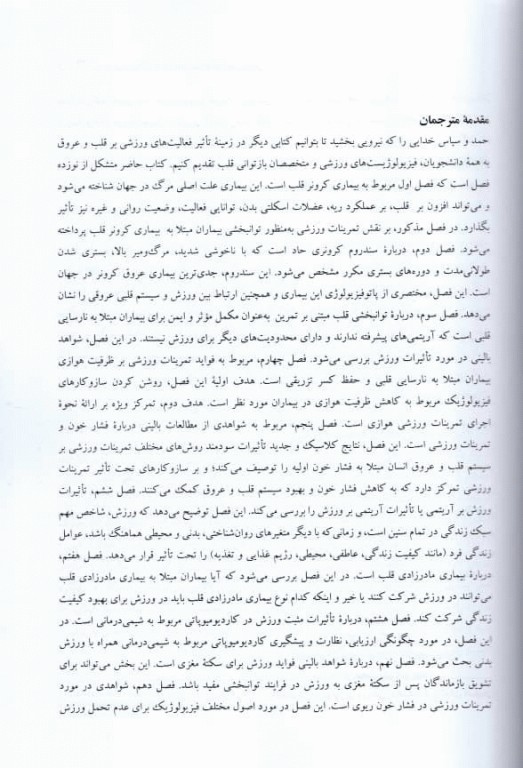 مقدمهٔ مترجمان
حمد و سپاس خدایی را که نیرویی بخشید تا بتوانیم کتابی دیگر در زمینهٔ تأثیر فعالیت‌های ورزشی بر قلب و عروق
به همهٔ دانشجویان، فیزیولوژیست‌های ورزشی و متخصصان بازتوانی قلب تقدیم کنیم. کتاب حاضر متشکل از نوزده
فصل است که فصل اول مربوط به بیماری کرونر قلب است. این بیماری علت اصلی مرگ در جهان شناخته می‌شود
و می‌تواند افزون بر قلب، بر عملکرد ریه، عضلات اسکلتی بدن، توانایی فعالیت، وضعیت روانی و غیره نیز تأثیر
بگذارد. در فصل مذکور، بر نقش تمرینات ورزشی به‌منظور توانبخشی بیماران مبتلا به بیماری کرونر قلب پرداخته
می‌شود. فصل دوم، دربارهٔ سندروم کرونری حاد است که با ناخوشی شدید، مرگ‌ومیر بالا، بستری شدن
طولانی‌مدت و دوره‌های بستری مکرر مشخص می‌شود. این سندروم، جدی‌ترین بیماری عروق کرونر در جهان
است. این فصل، مختصری از پاتوفیزیولوژی این بیماری و همچنین ارتباط بین ورزش و سیستم قلبی عروقی را نشان
می‌دهد. فصل سوم، دربارهٔ توانبخشی قلب مبتنی بر تمرین به‌عنوان مکمل مؤثر و ایمن برای بیماران مبتلا به نارسایی
قلبی است که آریتمی‌های پیشرفته ندارند و دارای محدودیت‌های دیگر برای ورزش نیستند. در این فصل، شواهد
بالینی در مورد تأثیرات ورزش بررسی می‌شود. فصل چهارم، مربوط به فواید تمرینات ورزشی بر ظرفیت هوازی
بیماران مبتلا به نارسایی قلبی و حفظ کسر تزریقی است. هدف اولیهٔ این فصل، روشن کردن سازوکارهای
فیزیولوژیک مربوط به کاهش ظرفیت هوازی در بیماران مورد نظر است. هدف دوم، تمرکز ویژه بر ارائهٔ نحوهٔ
اجرای تمرینات ورزشی هوازی است. فصل پنجم، مربوط به شواهدی از مطالعات بالینی دربارهٔ فشار خون و
تمرینات ورزشی است. این فصل، نتایج کلاسیک و جدید تأثیرات سودمند روش‌های مختلف تمرینات ورزشی بر
سیستم قلب و عروق انسان مبتلا به فشار خون اولیه را توصیف می‌کند؛ و بر سازوکارهای تحت تأثیر تمرینات
ورزشی تمرکز دارد که به کاهش فشار خون و بهبود سیستم قلب و عروق کمک می‌کنند. فصل ششم، تأثیرات
ورزش بر آریتمی یا تأثیرات آریتمی بر ورزش را بررسی می‌کند. این فصل توضیح می‌دهد که ورزش، شاخص مهم
سبک زندگی در تمام سنین است، و زمانی‌که با دیگر متغیرهای روان‌شناختی، بدنی و محیطی هماهنگ باشد، عوامل
زندگی فرد (مانند کیفیت زندگی، عاطفی، محیطی، رژیم غذایی و تغذیه) را تحت تأثیر قرار می‌دهد. فصل هفتم،
دربارهٔ بیماری مادرزادی قلب است. در این فصل بررسی می‌شود که آیا بیماران مبتلا به بیماری مادرزادی قلب
می‌توانند در ورزش شرکت کنند یا خیر و اینکه کدام نوع بیماری مادرزادی قلب باید در ورزش برای بهبود کیفیت
زندگی شرکت کند. فصل هشتم، دربارهٔ تأثیرات مثبت ورزش در کاردیومیوپاتی مربوط به شیمی‌درمانی است. در
این فصل، در مورد چگونگی ارزیابی، نظارت و پیشگیری کاردیومیوپاتی مربوط به شیمی‌درمانی همراه با ورزش
بدنی بحث می‌شود. فصل نهم، دربارهٔ شواهد بالینی فواید ورزش برای سکتهٔ مغزی است. این بخش می‌تواند برای
تشویق بازماندگان پس از سکتهٔ مغزی به ورزش در فرایند توانبخشی مفید باشد. فصل دهم، شواهدی در مورد
تمرینات ورزشی در فشار خون ریوی است. این فصل در مورد اصول مختلف فیزیولوژیک برای عدم تحمل ورزش